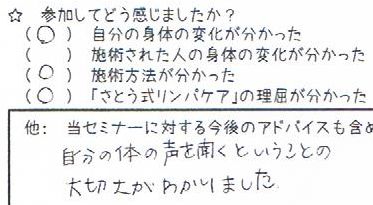 ☆ 参加してどう感じましたか？
（○）自分の身体の変化が分かった
（ ）施術された人の身体の変化が分かった
（○）施術方法が分かった
（○）「さとう式リンパケア」の理屈が分かった
他: 当セミナーに対する今後のアドバイスも含め
自分の体の声を聞くということの
大切さがわかりました